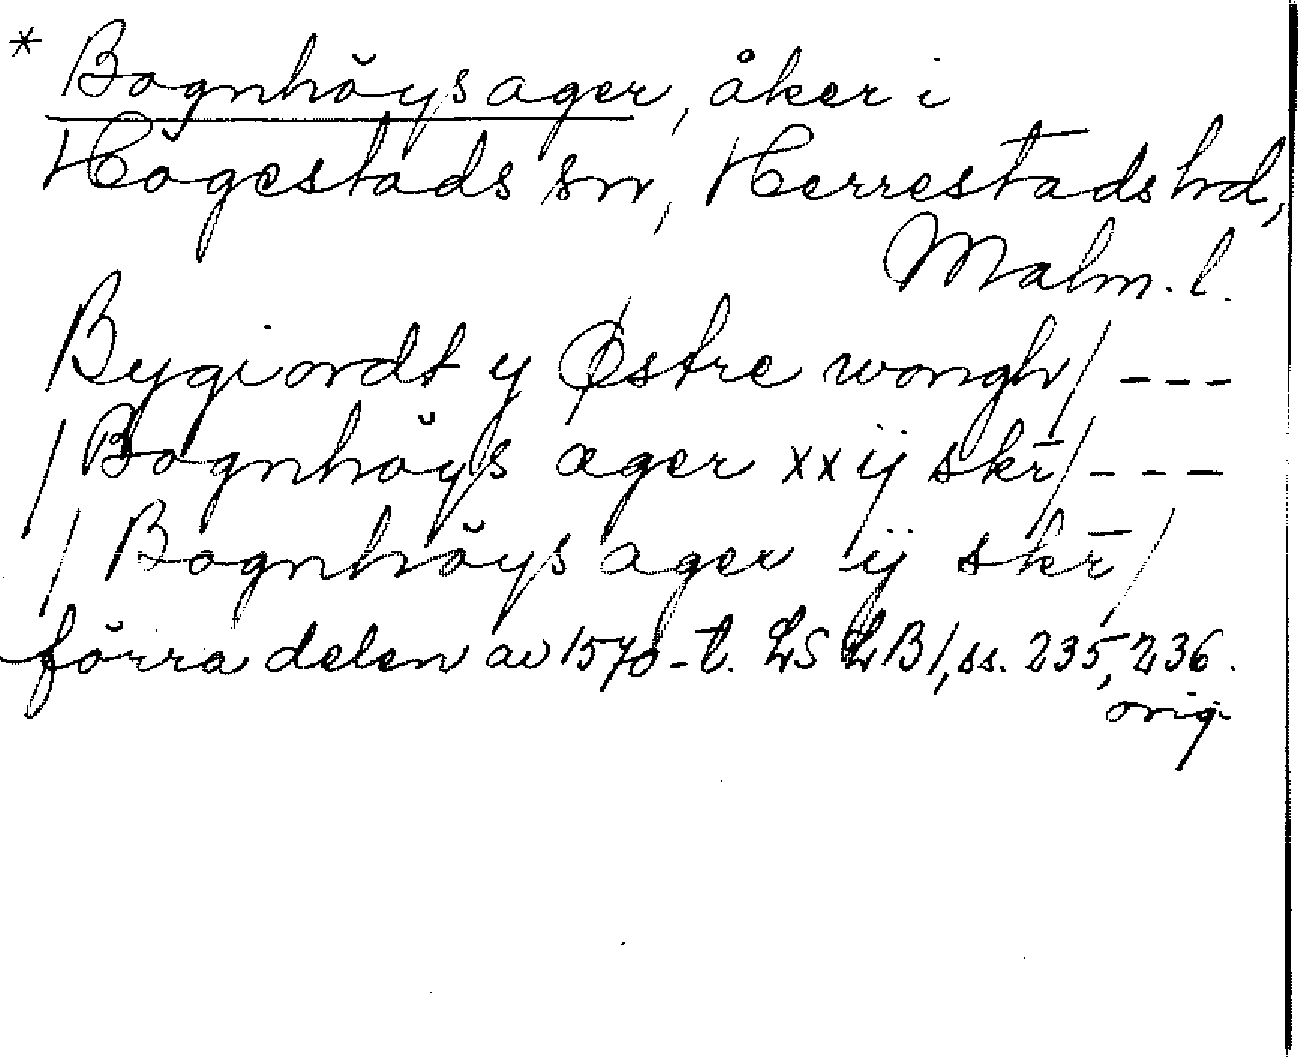 * Bognhöysager, åker i
Högestads sn, Herrestads hd,
Malm. l.
Bygiordt y Østre wongh/ ---
/ Bognhöys ager xxij skr̄/ ---
/ Bognhöys ager ij skr̄/
förra delen av 1570-t. LSLB 1, ss. 235, 236.
orig.